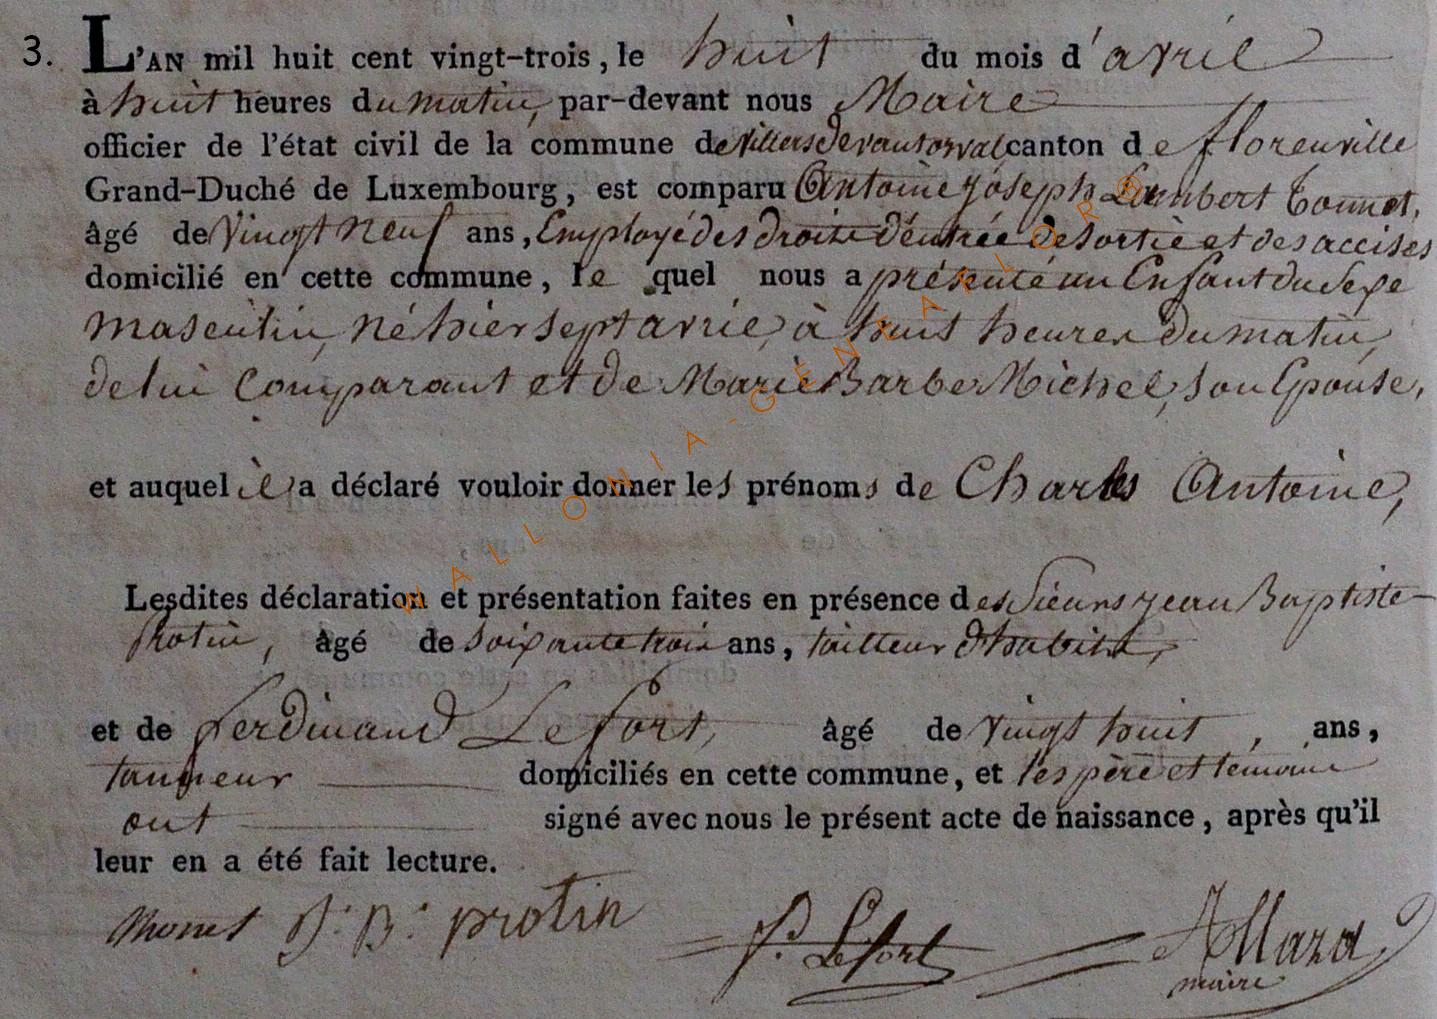 3. L'AN mil huit cent vingt-trois, le huit du mois d'avril
à huit heures du matin, par-devant nous Maire
officier de l'état civil de la commune de Villers devant orval canton de florenville
Grand-Duché de Luxembourg, est comparu Antoine Joseph Lambert
âgé de Vingt Neuf ans, Employé des droits d'entrée de sortie et des accises
domicilié en cette commune, le quel nous a présenté un Enfant du Sexe
masculin, Né hier sept avril, à huit heures du matin,
de lui Comparant et de Marie Barbe Michel, son Epouse,
et auquel il a déclaré vouloir donner les prénoms de Charles Antoine,
Lesdites déclaration et présentation faites en présence des Sieurs Jean Baptiste
Protin, âgé de soixante trois ans, tailleur d'habits,
et de Ferdinand Lefort, âgé de Vingt huit, ans,
tanneur domiciliés en cette commune, et les père et témoins
ont signé avec nous le présent acte de naissance, après qu'il
leur en a été fait lecture.
J. B. protin F. Lefort
maire
WALLONIA-GENEALORG